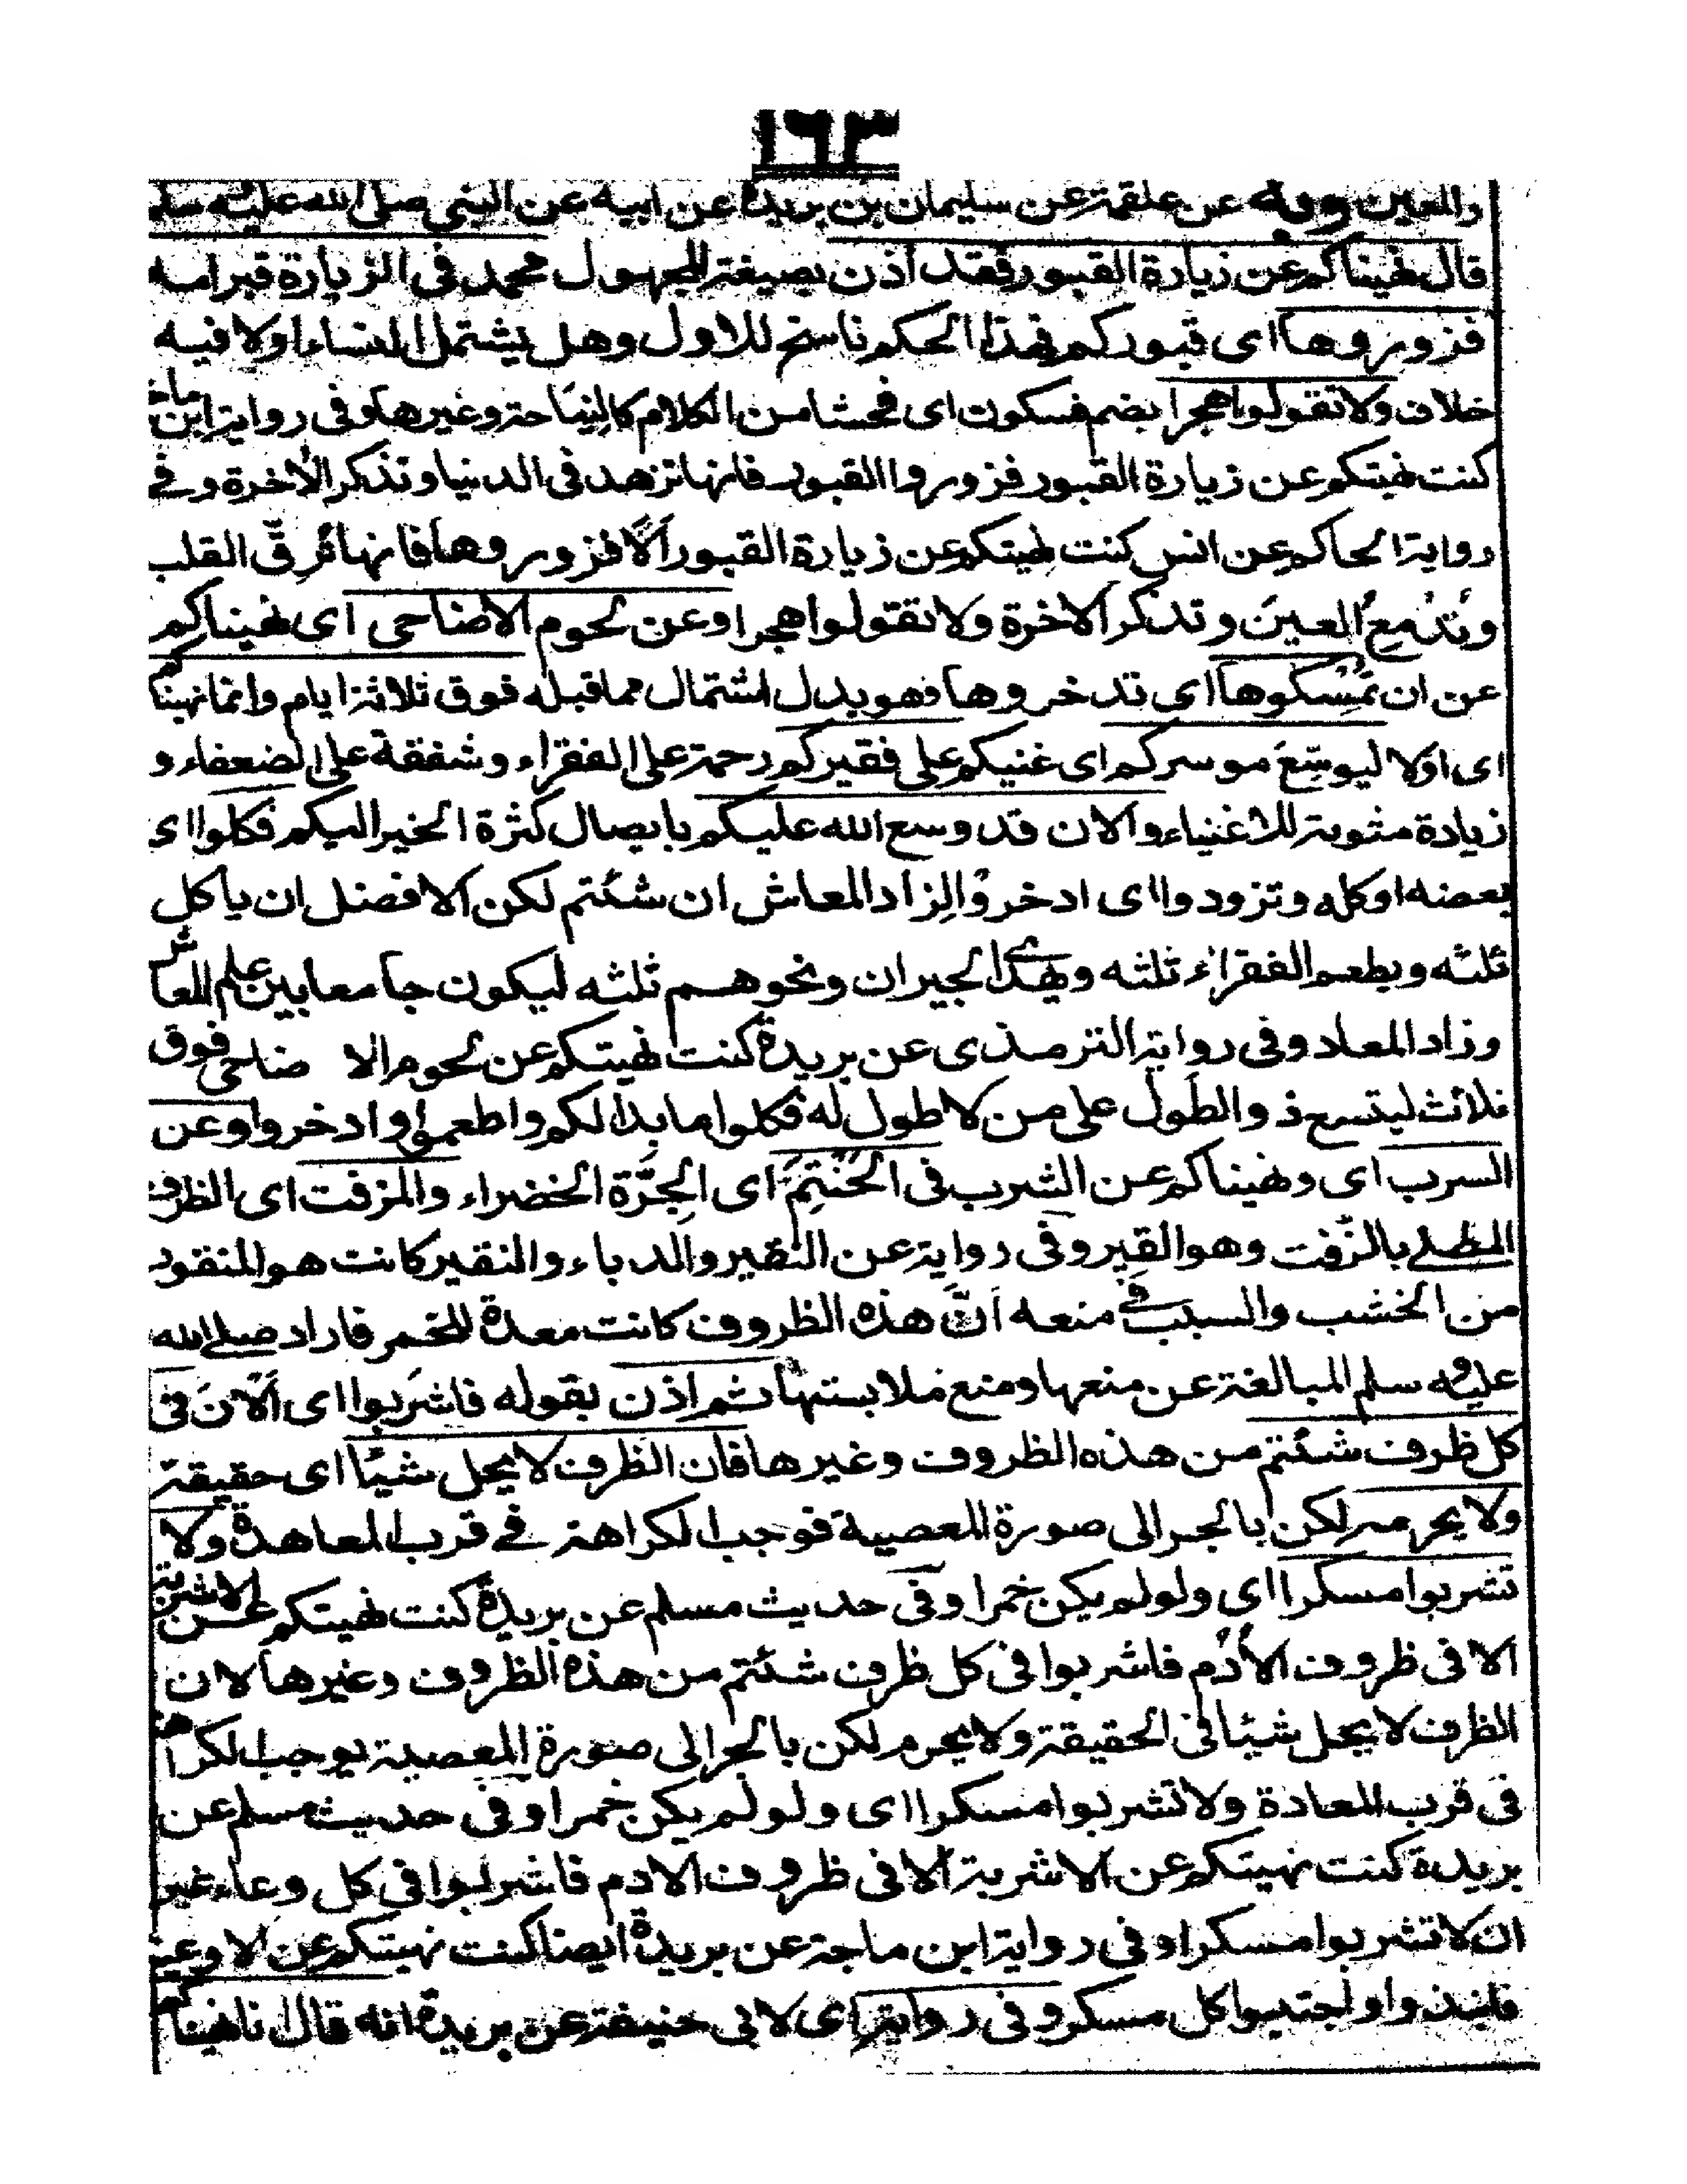 ١٦٣
والمعين وبه عن علقمة عن سليمان بن بريدة عن ابيه عن النبي صلى الله عليه وسلم
قال نهيناكم عن زيارة القبور فقد اذن بصيغة المجهول محمد فى الزيارة قبر امه
فزوروها اى قبوركم فهذا الحكم ناسخ للاول وهل يشتمل النساء اولا فيه
خلاف ولا تقولوا هجرا بضم فسكون اى فحشا من الكلام كالنياحة وغيرها وفى رواية ابن ماجة
كنت نهيتكم عن زيارة القبور فزوروا القبور فانها تزهد فى الدنيا وتذكر الآخرة وفى
رواية الحاكم عن انس كنت نهيتكم عن زيارة القبور ألا فزوروها فانها ترقّ القلب
وتُدْمِعُ العينَ وتذكر الآخرة ولا تقولوا هجرا وعن لحوم الاضاحى اى نهيناكم
عن ان تُمْسِكوها اى تدخروها فهو بدل اشتمال مما قبله فوق ثلاثة ايام وانما نهيناكم
اى اولا ليوسّعَ موسركم اى غنيكم على فقيركم رحمة على الفقراء وشفقة على الضعفاء و
زيادة مثوبة للاغنياء والآن قد وسع الله عليكم بايصال كثرة الخير اليكم فكلوا اى
بعضه او كله وتزودوا اى ادخروا لزاد المعاش ان شئتم لكن الافضل ان ياكل
ثلثه ويطعم الفقراء ثلثه ويهدى الجيران ونحوهم ثلثه ليكون جامعا بين علم المعاش
وزاد المعاد وفى رواية الترمذى عن بريدة كنت نهيتكم عن لحوم الا ضاحى فوق
ثلاث ليتسع ذو الطَول على من لا طول له فكلوا ما بدا لكم واطعموا وادخروا وعن
السرب اى ونهيناكم عن الشرب فى الحَنْتَمِ اى الجرّة الخضراء والمزفت اى الظرف
المطلى بالزّفت وهو القير وفى رواية عن النقير والدباء والنقير كانت هو المنقور
من الخشب والسبب فى منعه أنّ هذه الظروف كانت معدة للخمر فاراد صلى الله
عليه وسلم المبالغة عن منعها ومنع ملابستها ثم اذن بقوله فاشربوا اى ألآن فى
كل ظرف شئتم من هذه الظروف وغيرها فان الظرف لا يحل شيئا اى حقيقة
ولا يحرمه لكن بالجر الى صورة المعصية فوجب الكراهة فى قرب المعاهدة ولا
تشربوا مسكرا اى ولو لم يكن خمرا وفى حديث مسلم عن بريدة كنت نهيتكم عن الاشربة
الا فى ظروف الأدُم فاشربوا فى كل ظرف شئتم من هذه الظروف وغيرها لان
الظرف لا يحل شيئا فى الحقيقة ولا يحرم لكن بالجر الى صورة المعصية يوجب الكراهة
فى قرب المعادة ولا تشربوا مسكرا اى ولو لم يكن خمرا وفى حديث مسلم عن
بريدة كنت نهيتكم عن الاشربة الا فى ظروف الادم فاشربوا فى كل وعاء غير
ان لا تشربوا مسكرا وفى رواية ابن ماجة عن بريدة ايضا كنت نهيتكم عن الاوعية
فانبذوا واجتنبوا كل مسكر وفى رواية اى لابى حنيفة عن بريدة انه قال نا نهيناكم